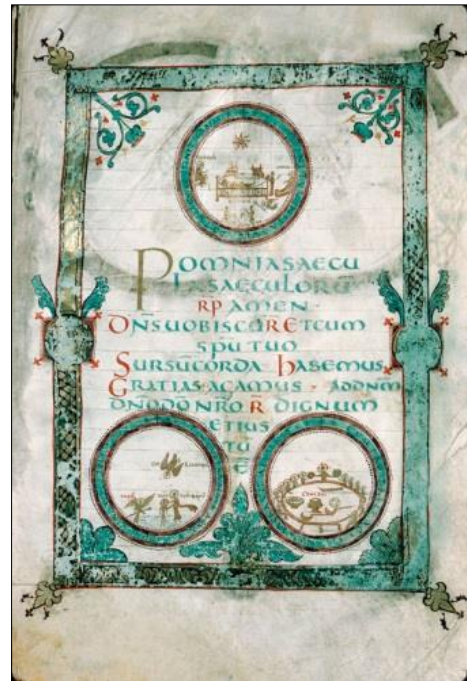 POMNIASAECU
LASAECULORŪ
RP AMEN·
DN̄SUOBISCŪ RETCUM
SPŪ TUO
SURSŪCORDA hABEMUS
GRATIASAGAMUS · ADDNM̄
DN̄ODŌNRŌ R̄ DIGNUM
ETIUS
TŪ
E